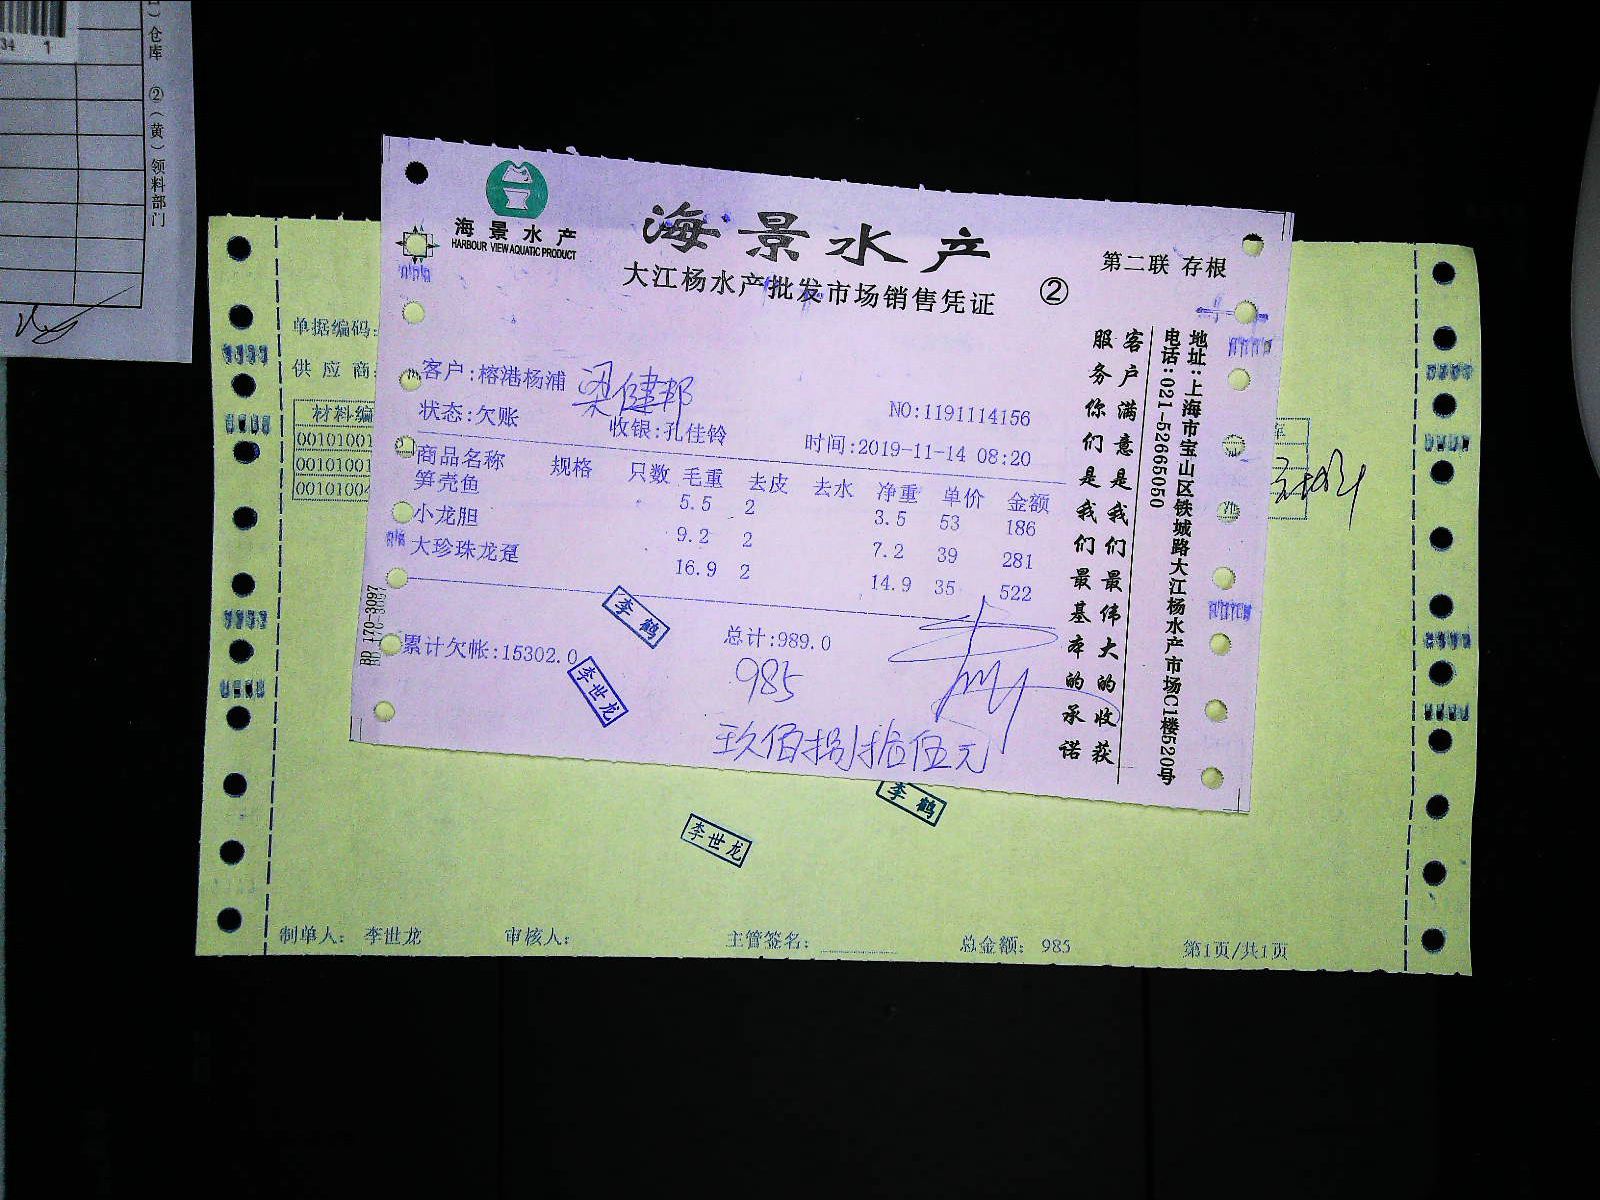 34 1
仓库 ②(黄)领料部门
海景水产
HARBOUR VIEW AQUATIC PRODUCT
海景水产
大江杨水产批发市场销售凭证 ②
第二联 存根
客户:榕港杨浦 梁健邦
NO:1191114156
状态:欠账 收银:孔佳铃 时间:2019-11-14 08:20
商品名称 规格 只数 毛重 去皮 去水 净重 单价 金额
笋壳鱼 5.5 2 3.5 53 186
小龙胆 9.2 2 7.2 39 281
大珍珠龙趸 16.9 2 14.9 35 522
累计欠帐:15302.0 总计:989.0
985
玖佰捌拾伍元
李鹤
李世龙
BD 170-3097
地址:上海市宝山区铁城路大江杨水产市场C1楼520号
电话:021-52665050
客户满意是我们最伟大的收获
服务你们是我们最基本的承诺
单据编码:
供应商:
材料编
00101001
00101001
00101004
李鹤
李世龙
制单人: 李世龙 审核人: 主管签名: 总金额: 985 第1页/共1页